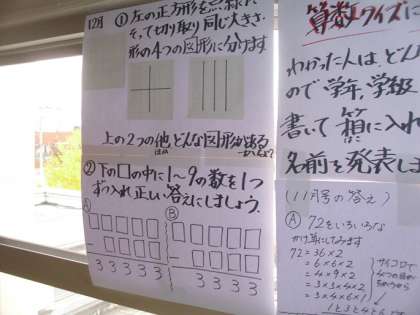 12月 ① 左の正方形を点線に
そって切り取り同じ大きさ、
形の4つの図形に分けます
上の2つの他、どんな図形がある
ほか
② 下の□の中に1〜9の数を1つ
ずつ入れ正しい答えにしましょう。
Ⓐ Ⓑ
-
-
3 3 3 3 3
3 3 3 3
算数クイズに
わかった人は、どん
ので学年、学級
書いて箱に入れ
名前を発表しま
(11月号の答え)
Ⓐ 72をいろいろな
かけ算にしてみます
72 = 36×2
= 6×6×2
= 4×9×2
= 3×3×4×2
= 3×4×6×1
サイコロで
4つの目が
1と3と4と6です